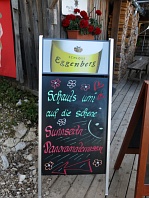 Eggenberg
Schauts umi
auf die schene
Sunnseitn
Panoramaterrassn